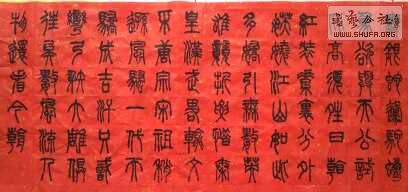 欲與天公試比
高須晴日看
紅裝素裹分外
妖嬈江山如此
多嬌引無數英
雄競折腰惜秦
皇漢武略輸文
采唐宗宋祖稍
遜風騷一代天
驕成吉思汗只識
彎弓射大雕俱
往矣數風流人
物還看今朝
WWW.SHUFA.ORG